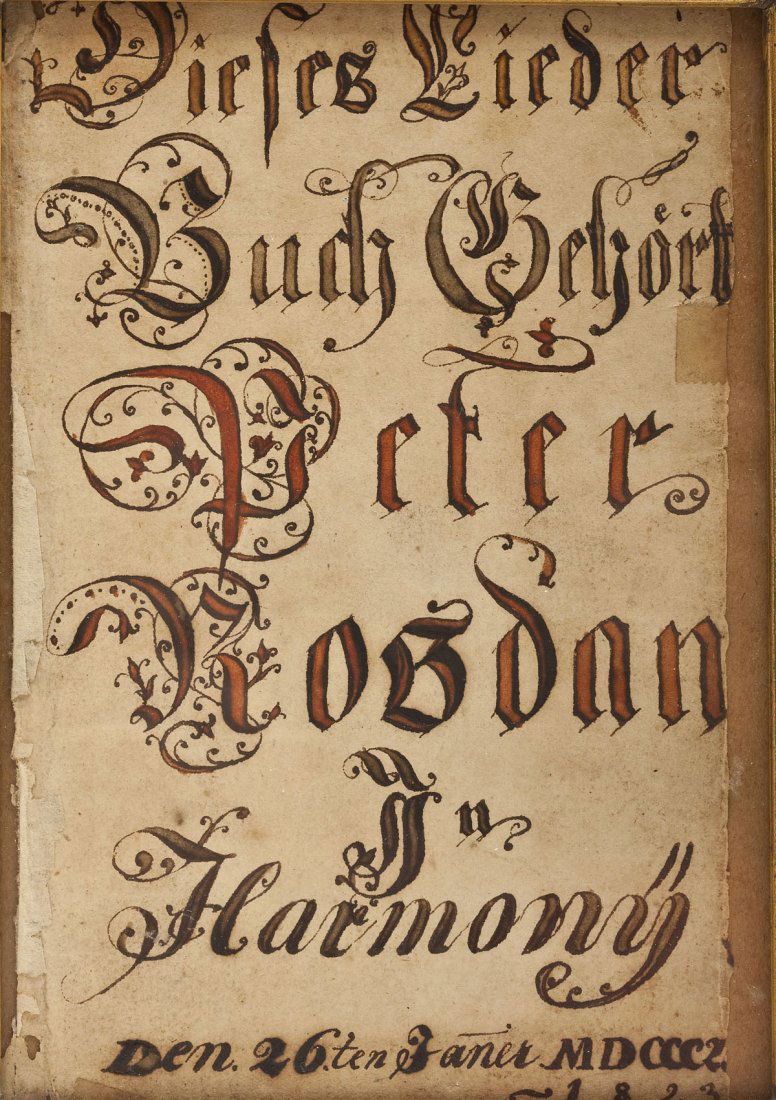 Dieses Lieder
Buch Gehört
Peter
Rosdan
In
Harmonÿ
Den. 26.ten Jan̄er. MDCCC2
1823